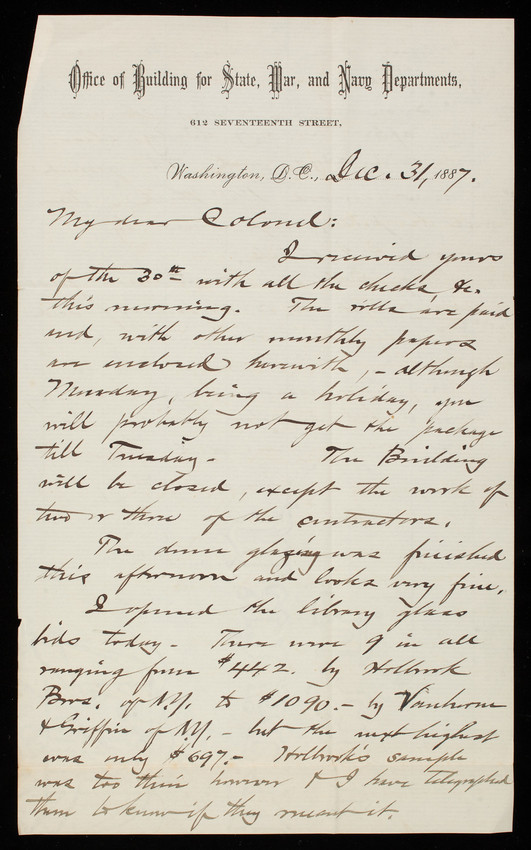 Office of Building for State, War, and Navy Departments,
612 SEVENTEENTH STREET,
Washington, D.C., Dec. 31, 1887.
My dear Colonel:
I received yours
of the 30th with all the checks, &c.
this morning. The rolls are paid
and, with other monthly papers
are enclosed herewith, - although
Monday, being a holiday, you
will probably not get the package
till Tuesday - The Building
will be closed, except the work of
two or three of the contractors.
The dome glazing was finished
this afternoon and looks very fine.
I opened the library glass
bids today - There were 9 in all
ranging from $442. by Holbrook
Bros. of N.Y. to $1090.- by Vanhorne
& Griffin of N.Y. - but the next highest
was only $697.- Holbrook's sample
was too thin however & I have telegraphed
them to know if they meant it.